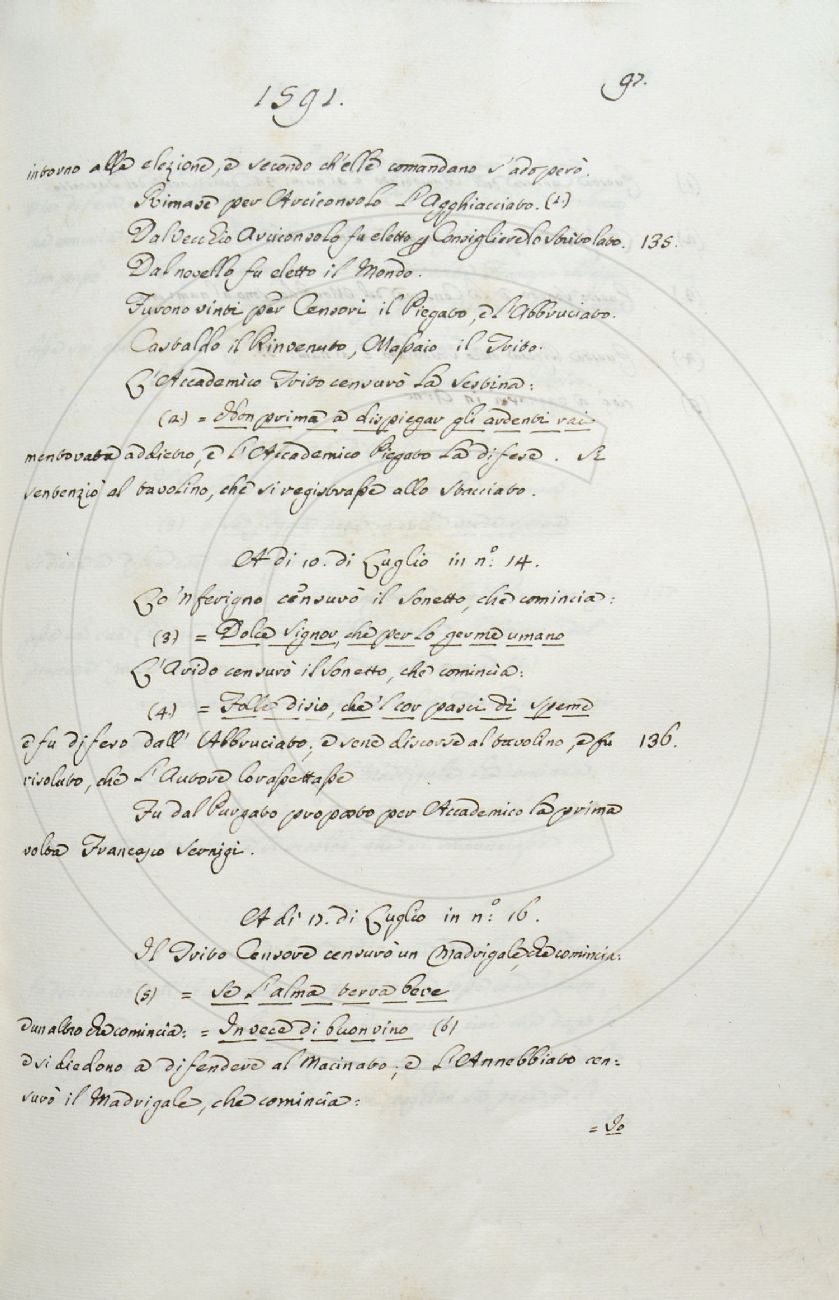 1591.
97.
intorno alle elezione, e secondo ch'elle comandano s'adoperò.
Rimase per Arciconsolo L'Agghiacciato. (1)
Dal Vecchio Arciconsolo fu eletto p Consigliere lo Stritolato. 135.
Dal novello fu eletto il Mondo.
Furono vinti per Censori il Piegato, e l'Abbruciato.
Castaldo il Rinvenuto, Massaio il Trito.
L'Accademico Trito censurò La Sestina:
(2) = Non prima a dispiegar gli ardenti rai
mentovata addietro, e L'Accademico Piegato La difese. Si
sentenziò al tavolino, che si registrasse allo Stacciato.
A dì 10. di Luglio in n.º 14.
Lo 'nferigno censurò il Sonetto, che comincia:
(3) = Dolce Signor, che per lo germe umano
L'Arido censurò il Sonetto, che comincia:
(4) = Folle disio, che 'l cor pasci di speme
e fu difeso dall' Abbruciato; e sene discorse al tavolino, e fu 136.
risoluto, che L'Autore lo rassettasse
Fu dal Purgato proposto per Accademico la prima
volta Francesco Sernigi.
A dì 17. di Luglio in n.º 16.
Il Trito Censore censurò un Madrigale, che comincia:
(5) = Se L'alma terra beve
e un altro che comincia: = In vece di buon vino (6)
e si diedono a difendere al Macinato; e L'Annebbiato cen:
surò il Madrigale, che comincia:
= Io